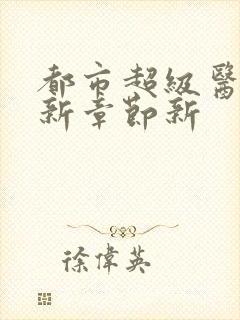 都市超級醫
新章節新
徐偉英